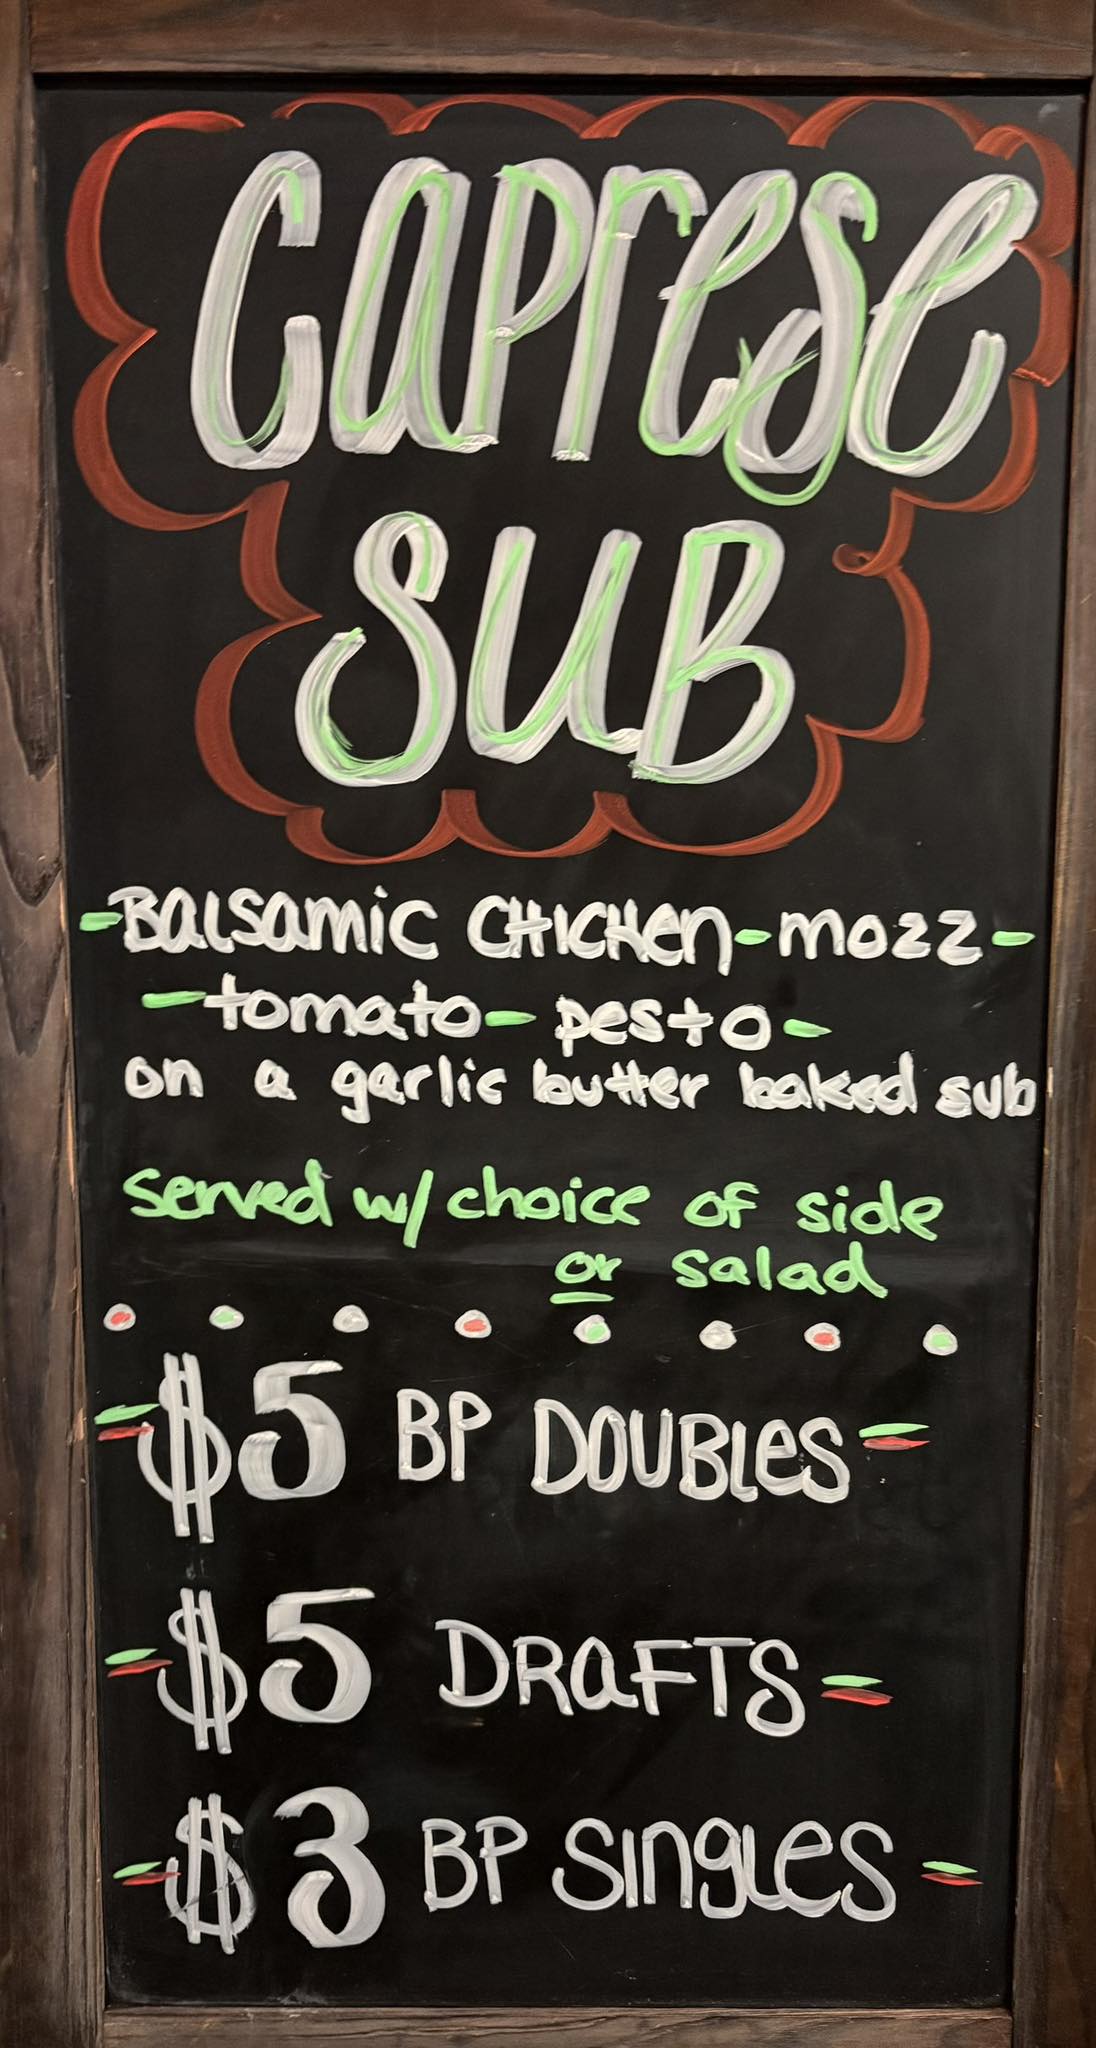 Caprese
SUB
-BALSamic CHICKen-mozz-
-tomato-pesto-
on a garlic butter baked sub
served w/ choice of side
or salad
$5 BP DOUBLes
$5 DRaFTS
$3 BP SingLes